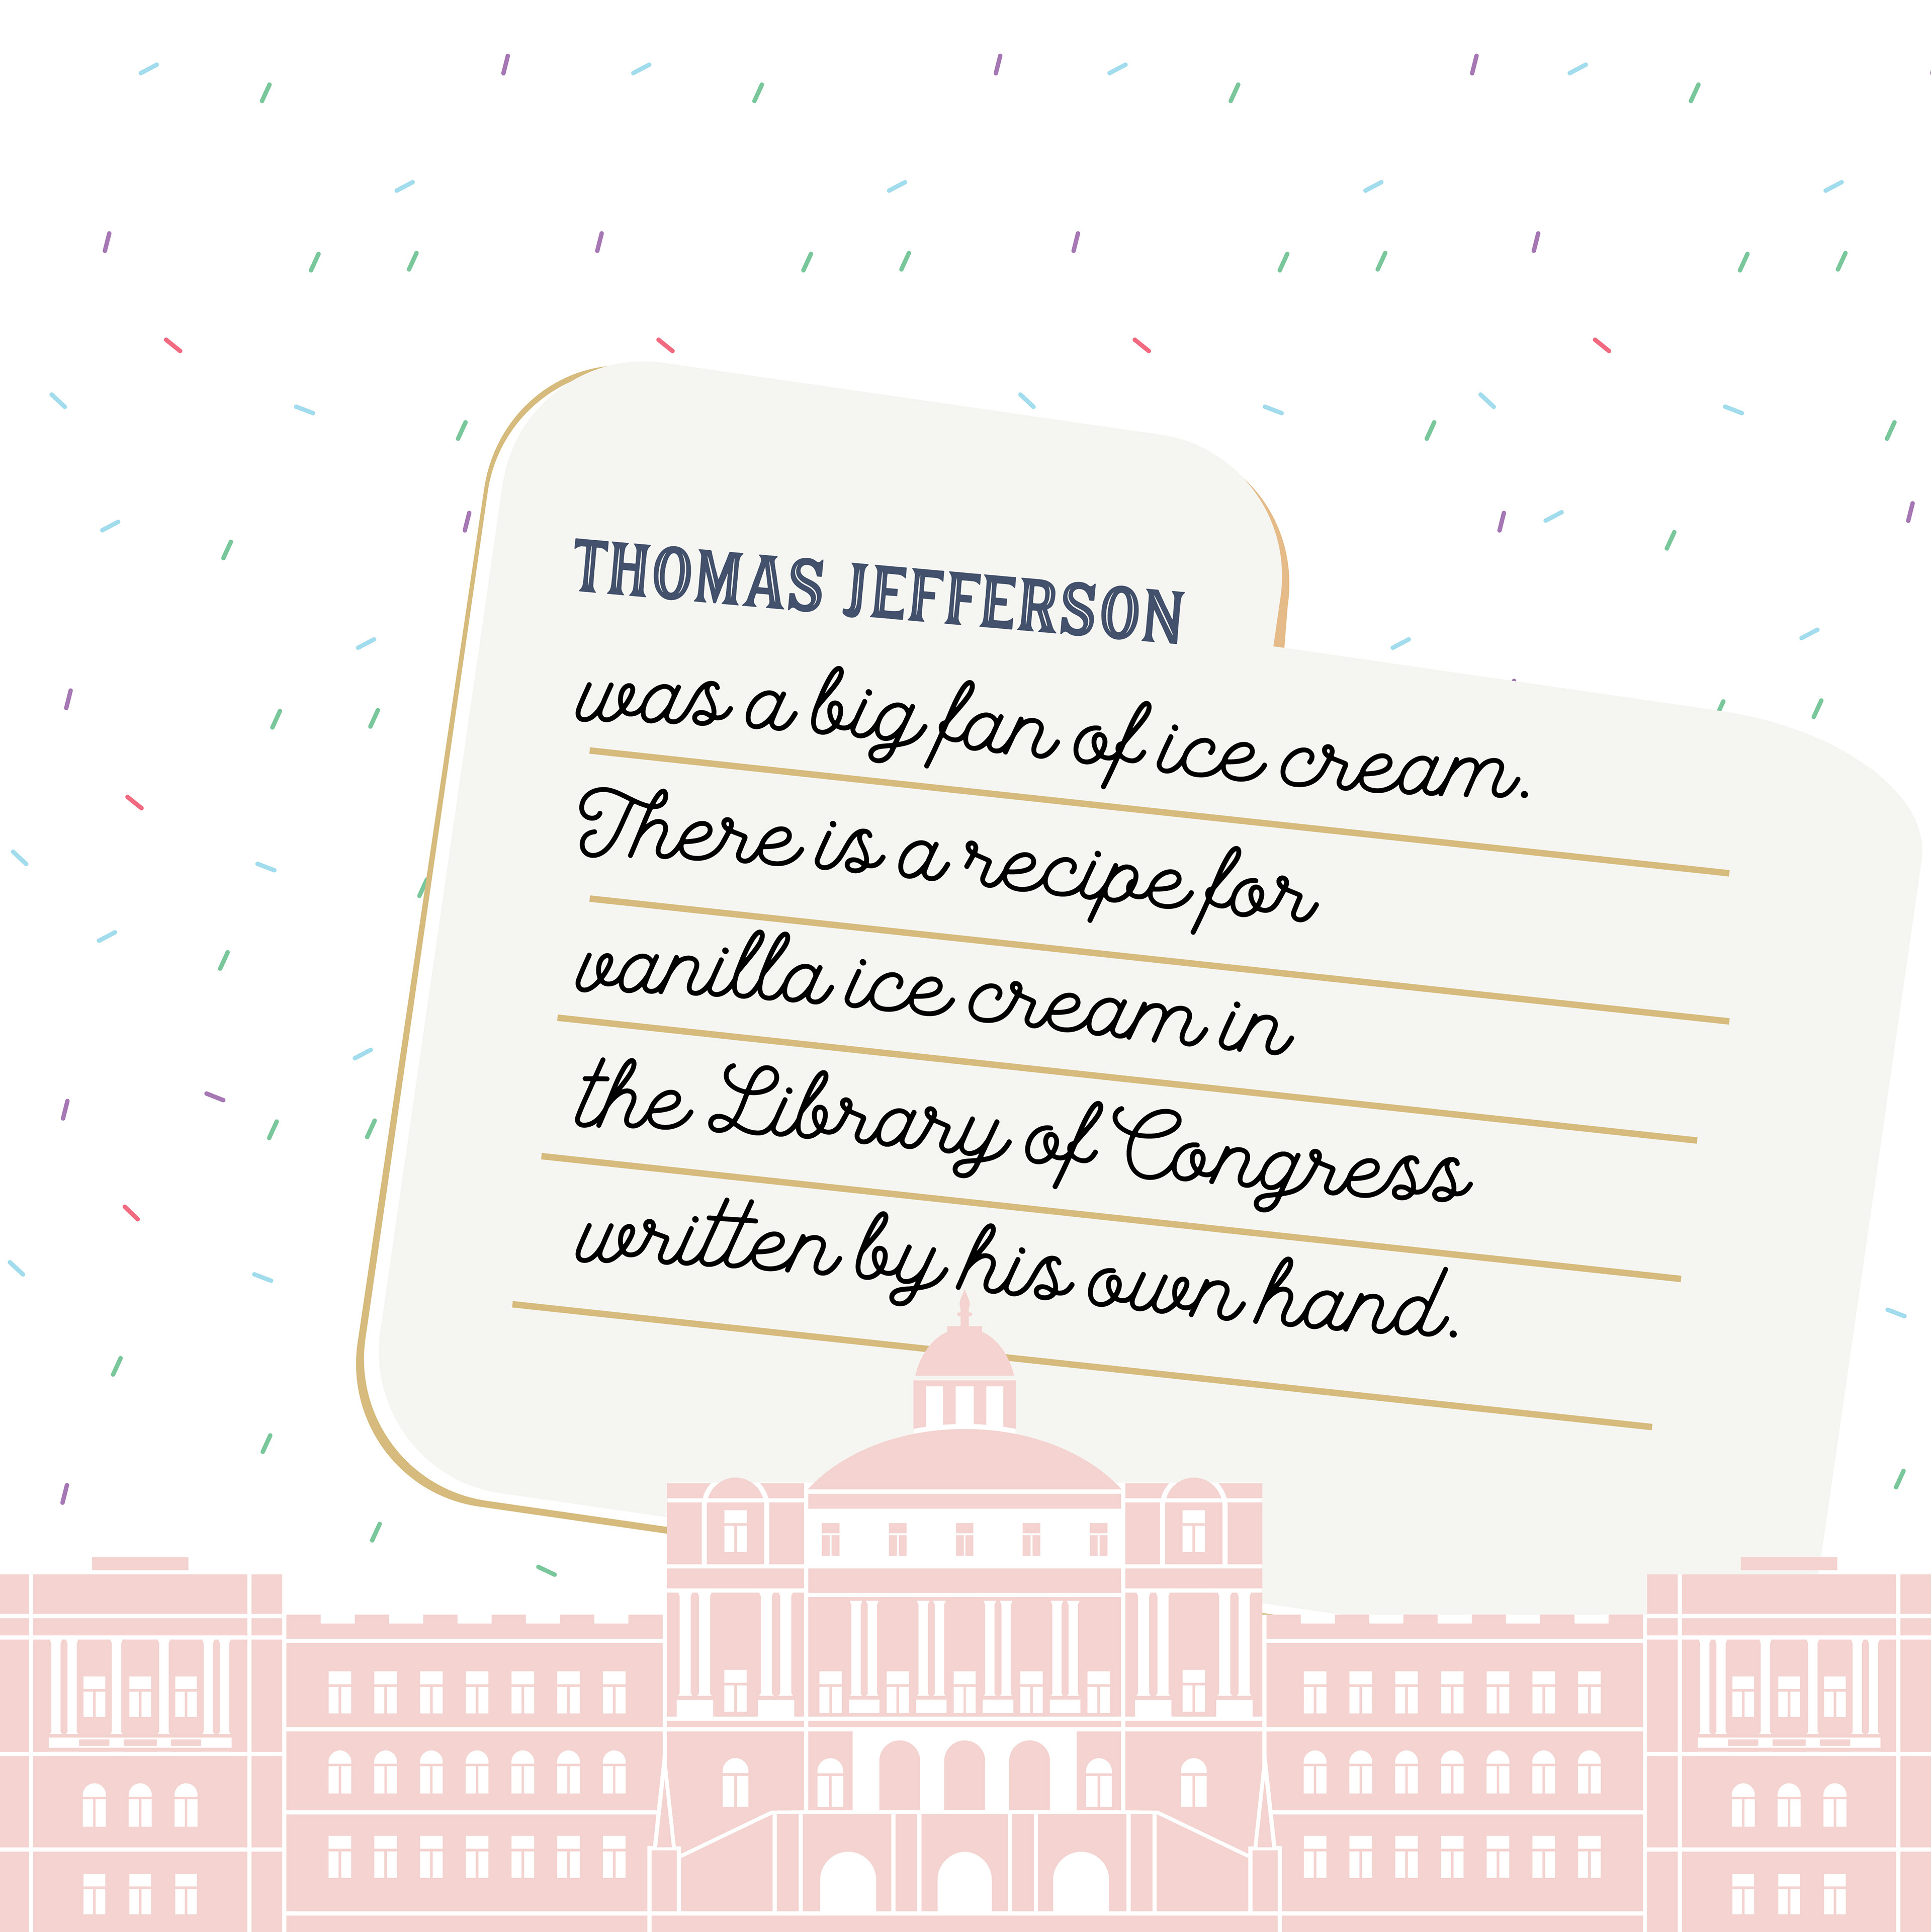 THOMAS JEFFERSON
was a big fan of ice cream.
There is a recipe for
vanilla ice cream in
the Library of Congress
written by his own hand.